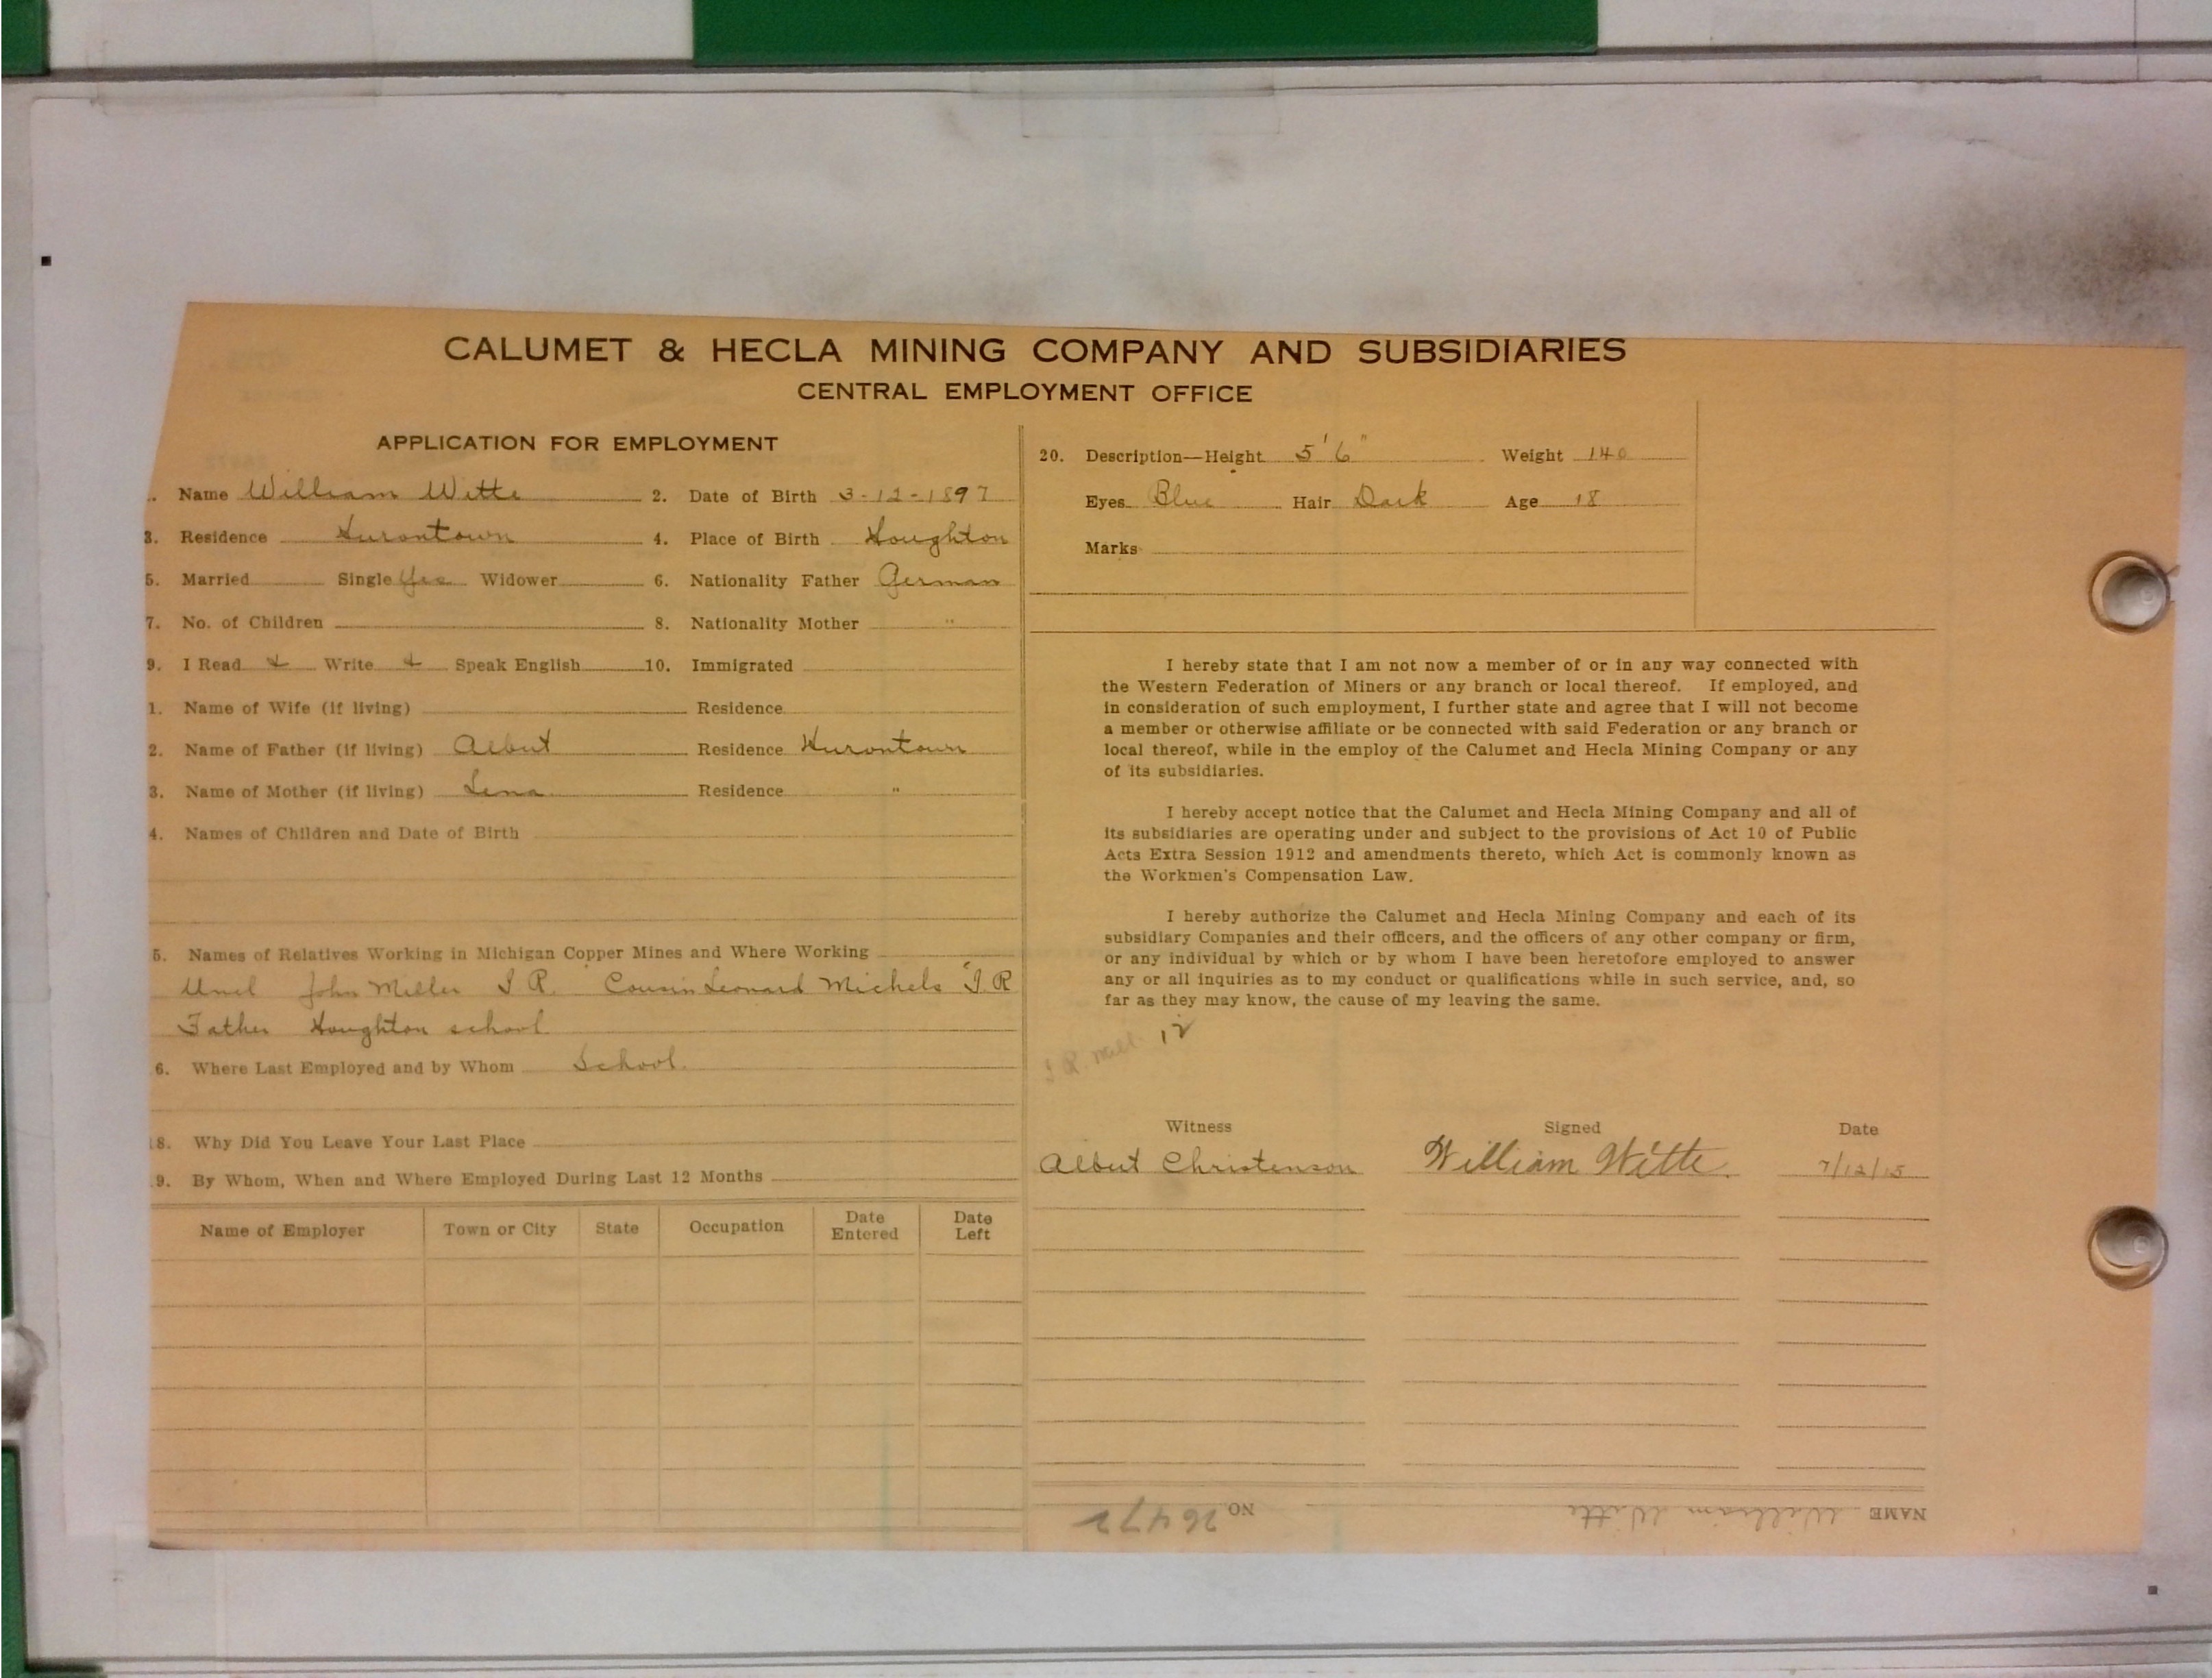 CALUMET & HECLA MINING COMPANY AND SUBSIDIARIES
CENTRAL EMPLOYMENT OFFICE
APPLICATION FOR EMPLOYMENT
. Name William Witte 2. Date of Birth 3-12-1897
3. Residence Hurontown 4. Place of Birth Houghton
5. Married Single Yes Widower 6. Nationality Father German
7. No. of Children 8. Nationality Mother "
9. I Read Write Speak English 10. Immigrated
1. Name of Wife (if living) Residence
2. Name of Father (if living) Albert Residence Hurontown
3. Name of Mother (if living) Lena Residence "
4. Names of Children and Date of Birth
5. Names of Relatives Working in Michigan Copper Mines and Where Working
Uncl John Miller I R. Cousin Leonard Michels I. R
Father Houghton school
6. Where Last Employed and by Whom School.
18. Why Did You Leave Your Last Place
9. By Whom, When and Where Employed During Last 12 Months
Name of Employer Town or City State Occupation Date Entered Date Left
20. Description—Height 5' 6" Weight 140
Eyes Blue Hair Dark Age 18
Marks
I hereby state that I am not now a member of or in any way connected with
the Western Federation of Miners or any branch or local thereof. If employed, and
in consideration of such employment, I further state and agree that I will not become
a member or otherwise affiliate or be connected with said Federation or any branch or
local thereof, while in the employ of the Calumet and Hecla Mining Company or any
of its subsidiaries.
I hereby accept notice that the Calumet and Hecla Mining Company and all of
its subsidiaries are operating under and subject to the provisions of Act 10 of Public
Acts Extra Session 1912 and amendments thereto, which Act is commonly known as
the Workmen's Compensation Law.
I hereby authorize the Calumet and Hecla Mining Company and each of its
subsidiary Companies and their officers, and the officers of any other company or firm,
or any individual by which or by whom I have been heretofore employed to answer
any or all inquiries as to my conduct or qualifications while in such service, and, so
far as they may know, the cause of my leaving the same.
I R. Mill 12
Witness Signed Date
Albert Christenson William Witte 7/12/15
NAME William Witte NO. 26472